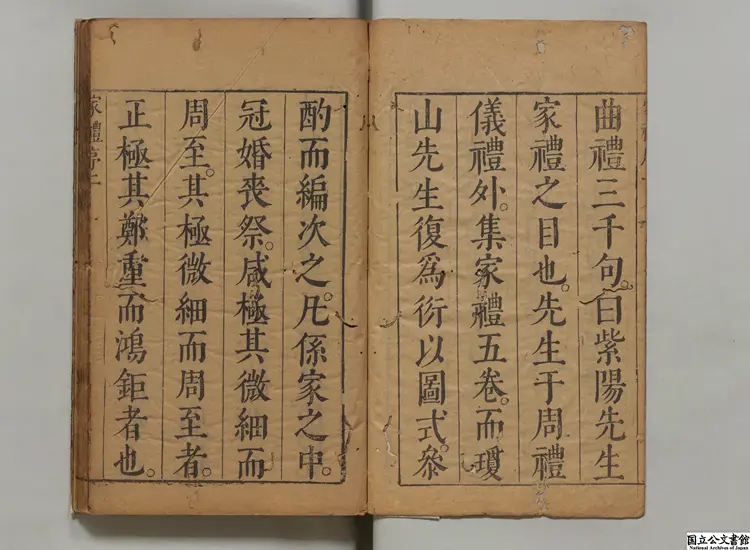 曲禮三千句。曰紫陽先生
家禮之目也。先生于周禮
儀禮外。集家禮五卷。而瓊
山先生復爲衍以圖式。叅
酌而編次之。凡係家之中。
冠婚喪祭。咸極其微細而
周至。其極微細而周至者。
正極其鄭重而鴻鉅者也。
家禮序二
国立公文書館
National Archives of Japan